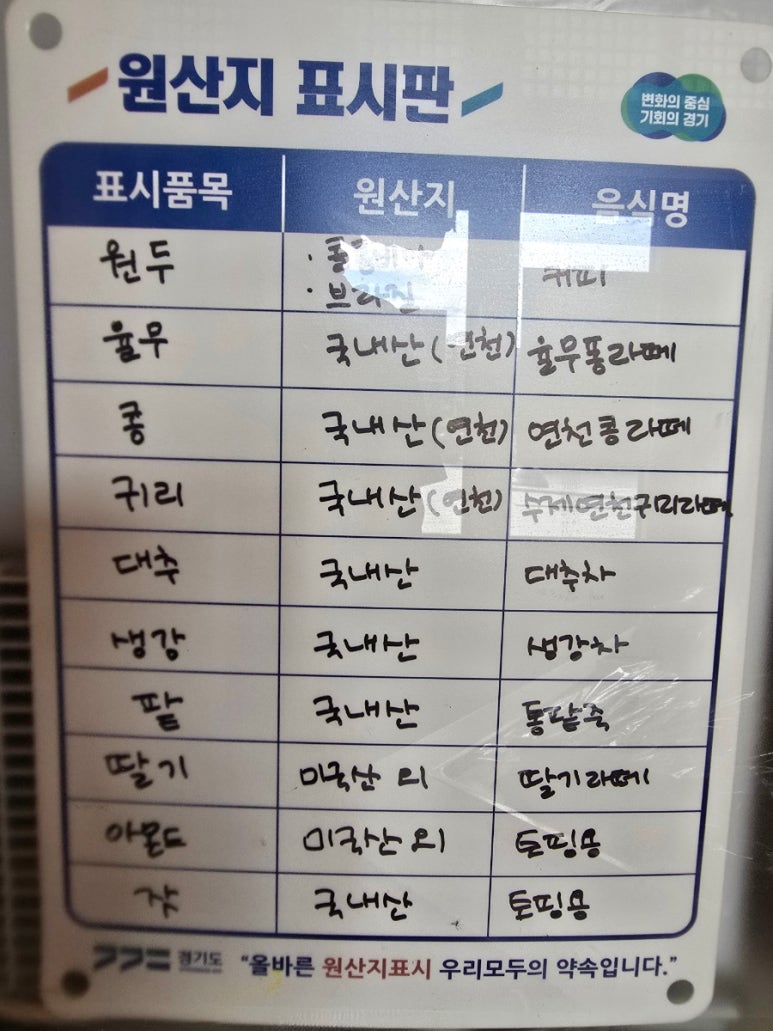 원산지 표시판
변화의 중심
기회의 경기
표시품목 원산지 음식명
원두 · 브라질 커피
율무 국내산 (연천) 율무통라떼
콩 국내산 (연천) 연천콩라떼
귀리 국내산 (연천) 수제연천귀리라떼
대추 국내산 대추차
생강 국내산 생강차
팥 국내산 통팥죽
딸기 미국산 외 딸기라떼
아몬드 미국산 외 토핑용
잣 국내산 토핑용
경기도 "올바른 원산지표시 우리모두의 약속입니다."